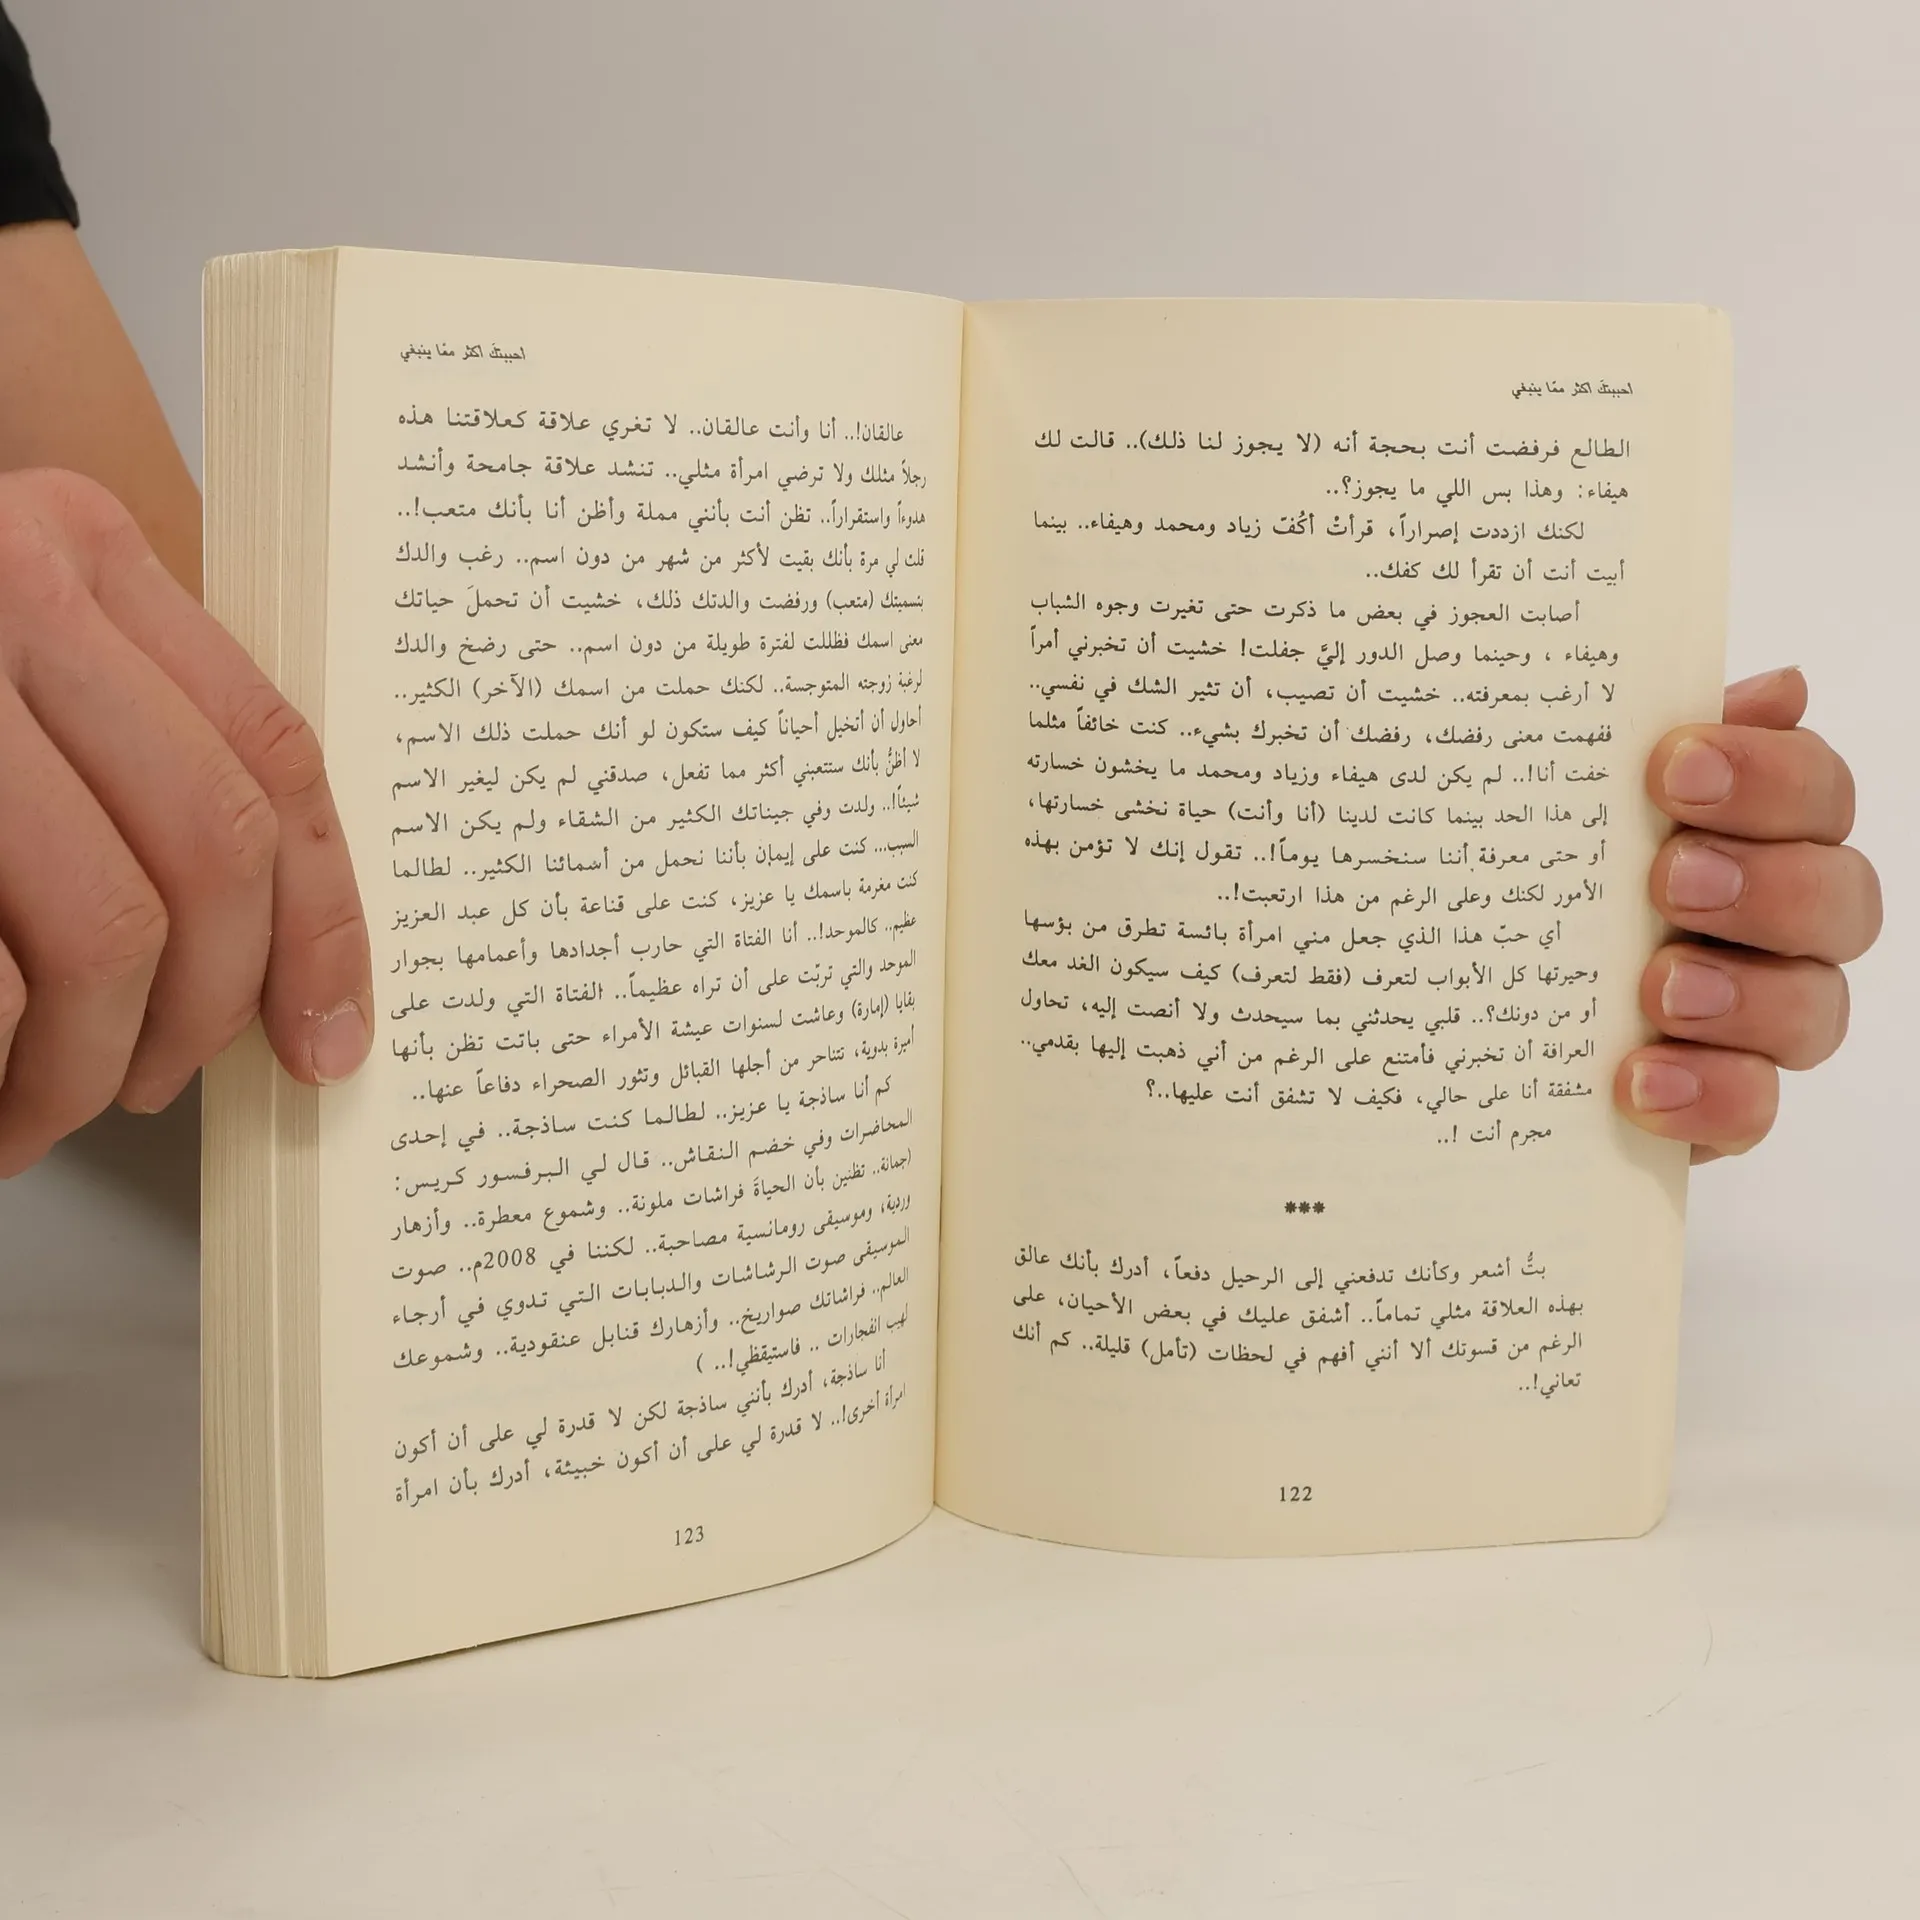 أحببتكَ أكثر ممّا ينبغي
الطالع فرفضت أنت بحجة أنه (لا يجوز لنا ذلك).. قالت لك
هيفاء: وهذا بس اللي ما يجوز؟..
لكنك ازددت إصراراً، قرأتْ أكُفّ زياد ومحمد وهيفاء.. بينما
أبيت أنت أن تقرأ لك كفك..
أصابت العجوز في بعض ما ذكرت حتى تغيرت وجوه الشباب
وهيفاء ، وحينما وصل الدور إليَّ جفلت! خشيت أن تخبرني أمراً
لا أرغب بمعرفته.. خشيت أن تصيب، أن تثير الشك في نفسي..
ففهمت معنى رفضك، رفضك أن تخبرك بشيء.. كنت خائفاً مثلما
خفت أنا!.. لم يكن لدى هيفاء وزياد ومحمد ما يخشون خسارته
إلى هذا الحد بينما كانت لدينا (أنا وأنت) حياة نخشى خسارتها،
أو حتى معرفة أننا سنخسرها يوماً!.. تقول إنك لا تؤمن بهذه
الأمور لكنك وعلى الرغم من هذا ارتعبت!..
أي حبّ هذا الذي جعل مني امرأة بائسة تطرق من بؤسها
وحيرتها كل الأبواب لتعرف (فقط لتعرف) كيف سيكون الغد معك
أو من دونك؟.. قلبي يحدثني بما سيحدث ولا أنصت إليه، تحاول
العرافة أن تخبرني فأمتنع على الرغم من أني ذهبت إليها بقدمي..
مشفقة أنا على حالي، فكيف لا تشفق أنت عليها..؟
مجرم أنت !..
***
بتُّ أشعر وكأنك تدفعني إلى الرحيل دفعاً، أدرك بأنك عالق
بهذه العلاقة مثلي تماماً.. أشفق عليك في بعض الأحيان، على
الرغم من قسوتك ألا أنني أفهم في لحظات (تأمل) قليلة.. كم أنك
تعاني!..
122
أحببتكَ أكثر ممّا ينبغي
عالقان!.. أنا وأنت عالقان.. لا تغري علاقة كعلاقتنا هذه
رجلاً مثلك ولا ترضي امرأة مثلي.. تنشد علاقة جامحة وأنشد
هدوءاً واستقراراً.. تظن أنت بأنني مملة وأظن أنا بأنك متعب!..
قلت لي مرة بأنك بقيت لأكثر من شهر من دون اسم.. رغب والدك
بتسميتك (متعب) ورفضت والدتك ذلك، خشيت أن تحملَ حياتك
معنى اسمك فظللت لفترة طويلة من دون اسم.. حتى رضخ والدك
لرغبة زوجته المتوجسة.. لكنك حملت من اسمك (الآخر) الكثير..
أحاول أن أتخيل أحياناً كيف ستكون لو أنك حملت ذلك الاسم،
لا أظنُّ بأنك ستتعبني أكثر مما تفعل، صدقني لم يكن ليغير الاسم
شيئاً!.. ولدت وفي جيناتك الكثير من الشقاء ولم يكن الاسم
السبب... كنت على إيمان بأننا نحمل من أسمائنا الكثير.. لطالما
كنت مغرمة باسمك يا عزيز، كنت على قناعة بأن كل عبد العزيز
عظيم.. كالموحد!.. أنا الفتاة التي حارب أجدادها وأعمامها بجوار
الموحد والتي تربّت على أن تراه عظيماً.. الفتاة التي ولدت على
بقايا (إمارة) وعاشت لسنوات عيشة الأمراء حتى باتت تظن بأنها
أميرة بدوية، تتناحر من أجلها القبائل وتثور الصحراء دفاعاً عنها..
كم أنا ساذجة يا عزيز.. لطالما كنت ساذجة.. في إحدى
المحاضرات وفي خضم النقاش.. قال لي البرفسور كريس:
(جمانة.. تظنين بأن الحياةَ فراشات ملونة.. وشموع معطرة.. وأزهار
وردية، وموسيقى رومانسية مصاحبة.. لكننا في 2008م.. صوت
الموسيقى صوت الرشاشات والدبابات التي تدوي في أرجاء
العالم.. فراشاتك صواريخ.. وأزهارك قنابل عنقودية.. وشموعك
لهيب انفجارات .. فاستيقظي!.. )
أنا ساذجة، أدرك بأنني ساذجة لكن لا قدرة لي على أن أكون
امرأة أخرى!.. لا قدرة لي على أن أكون خبيثة، أدرك بأن امرأة
123